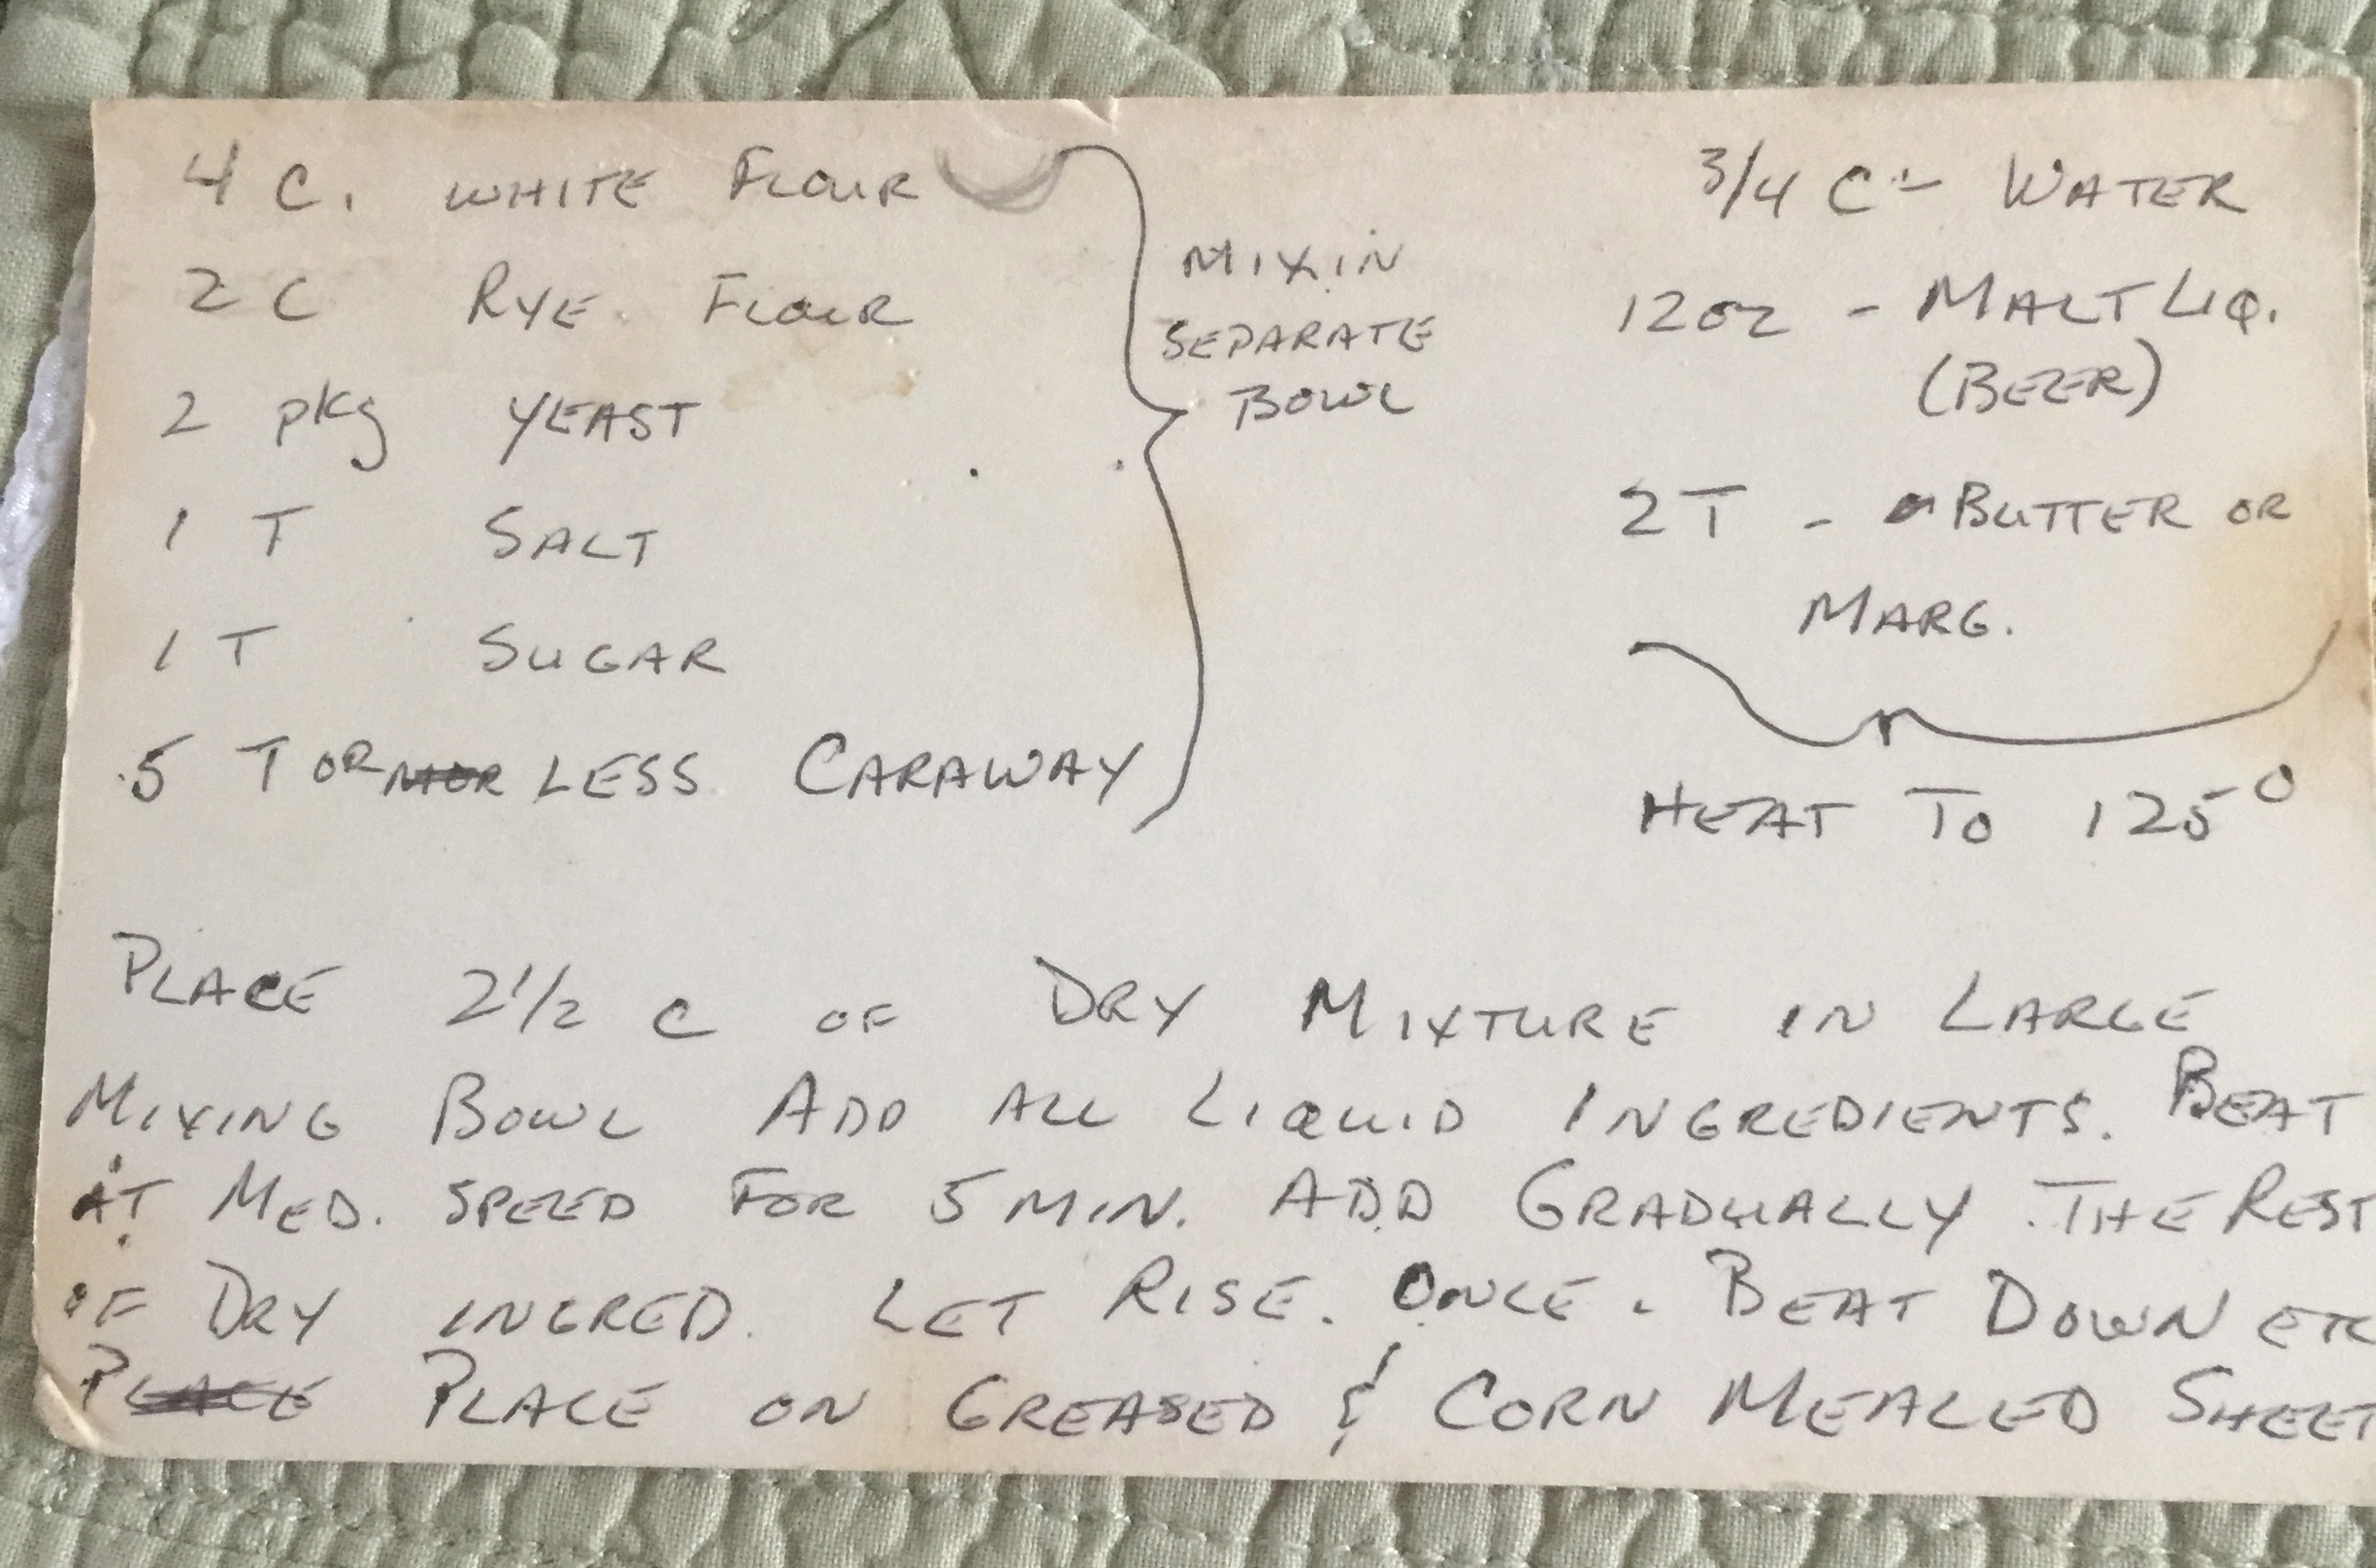 4 C. WHITE FLOUR
2 C RYE FLOUR
2 pkg YEAST
1 T SALT
1 T SUGAR
.5 T OR LESS CARAWAY
MIX IN
SEPARATE
BOWL
3/4 C - WATER
12 oz - MALT LIQ.
(BEER)
2 T - BUTTER OR
MARG.
HEAT TO 125°
PLACE 2 1/2 C OF DRY MIXTURE IN LARGE
MIXING BOWL ADD ALL LIQUID INGREDIENTS. BEAT
AT MED. SPEED FOR 5 MIN. ADD GRADUALLY THE REST
OF DRY INGRED. LET RISE. ONCE. BEAT DOWN ETC
PLACE PLACE ON GREASED & CORN MEALED SHEET